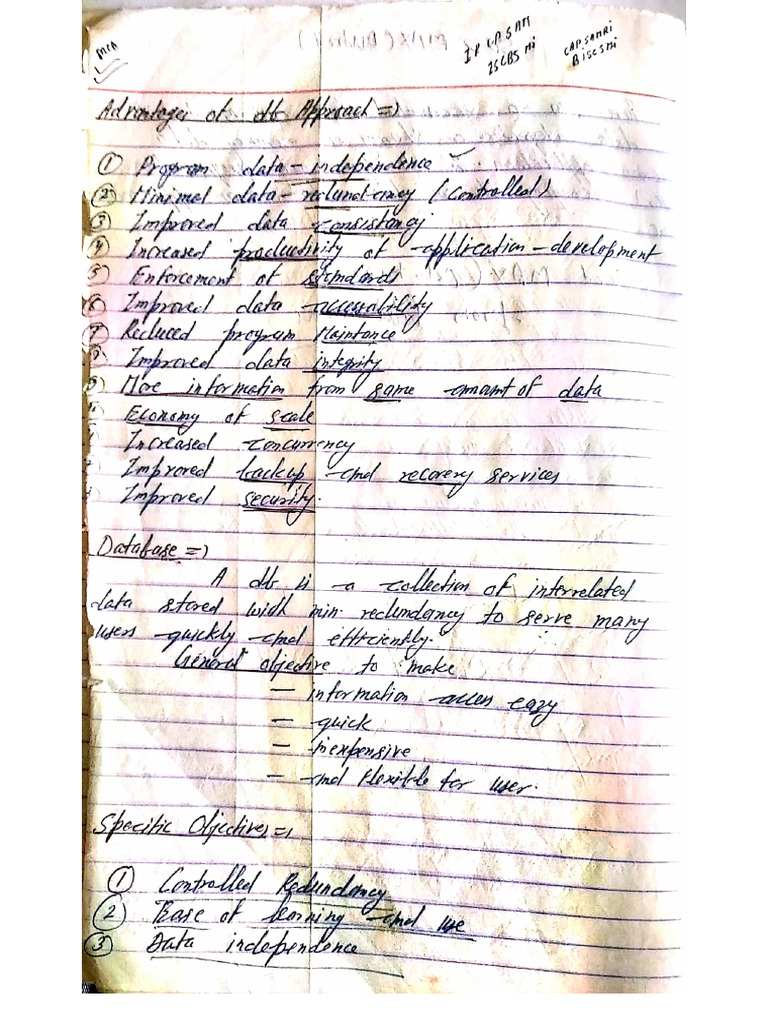 MCA
IP CP SAM
ISCBS MI
CAP SAMRI
BISCSMI
Advantages of db Approach =>
① Program data - independence
② Minimal data - redundancy (controlled)
③ Improved data consistancy
④ Increased productivity of application - development
⑤ Enforcement of standards
⑥ Improved data accessability
⑦ Reduced program Maintance
⑧ Improved data integrity
⑨ More information from same amount of data
Economy of scale
Increased concurrency
Improved backup and recovery services
Improved security.
Database =>
A db is a collection of interrelated
data stored with min. redundancy to serve many
users quickly and efficiently.
General objective to make
— information access eazy
— quick
— inexpensive
— and flexible for user.
Specific Objectives =>
① Controlled Redundancy
② Base of learning and use
③ Data independence